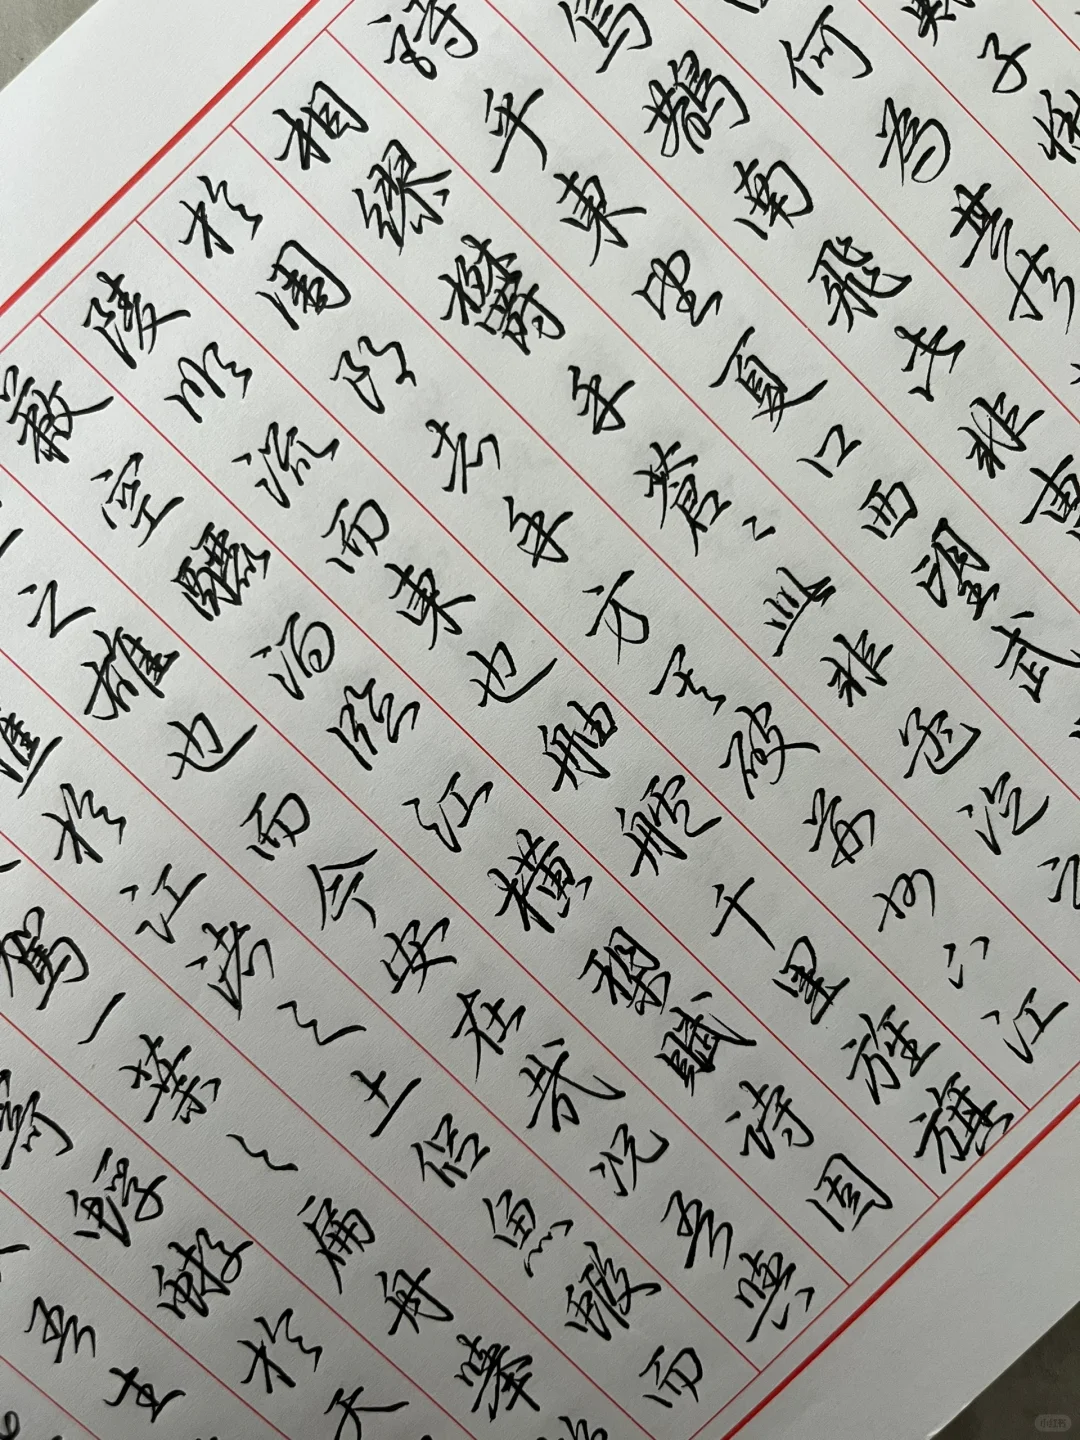 蘇子愀
何為其然
烏鵲南飛此非曹
詩乎東望夏口西望武
相繆鬱乎蒼々此非孟德之
於周郎者乎方其破荊州下江
陵順流而東也舳艫千里旌旗
蔽空釃酒臨江橫槊賦詩固
之雄也而今安在哉況吾與
樵於江渚之上侶魚蝦而
駕一葉之扁舟舉
寄蜉蝣於天
吾生